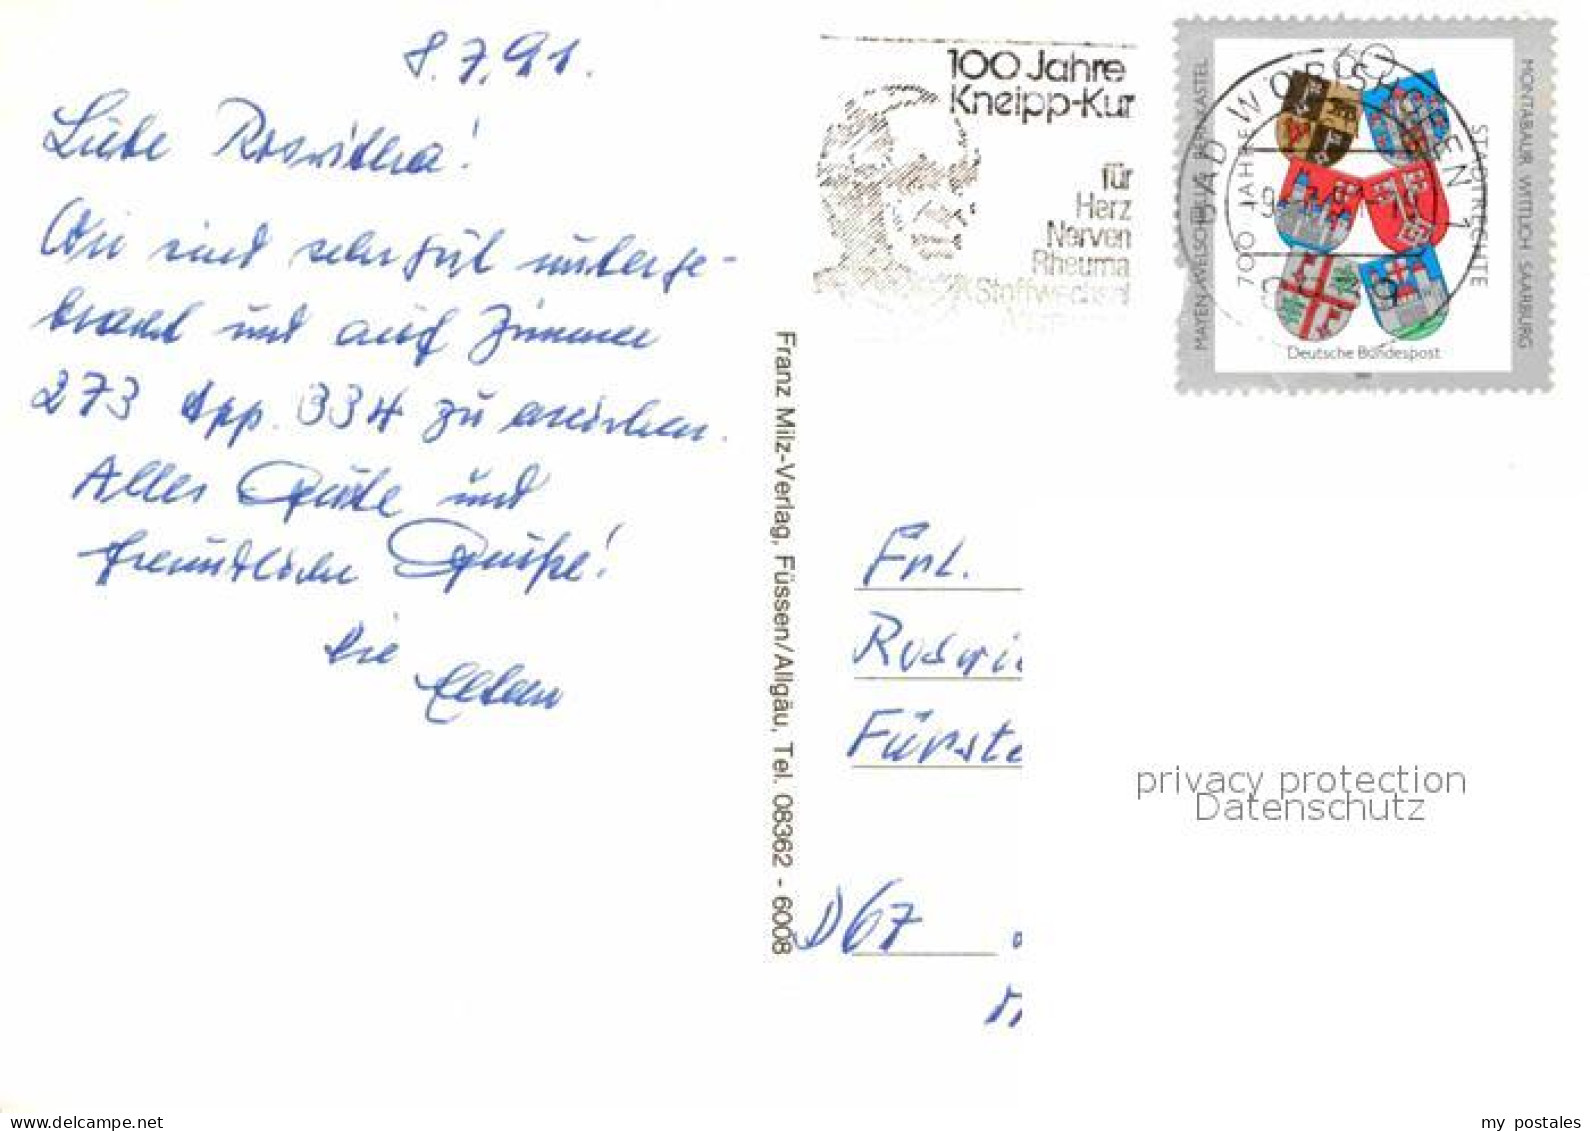 8.7.91.
Liebe Roswitha!
Wir sind sehr gut unterge-
bracht und auf Zimmer
273 App. 334 zu erreichen.
Alles Gute und
freundliche Grüße!
die
Eltern
Franz Milz-Verlag, Füssen/Allgäu, Tel. 08362 - 6008
100 Jahre
Kneipp-Kur
für
Herz
Nerven
Rheuma
Stoffwechsel
BAD WÖRISHOFEN 1
MAYEN WELSCHBILLIG BERNKASTEL
MONTABAUR WITTLICH SAARBURG
700 JAHRE
STADTRECHTE
60
Deutsche Bundespost
Frl.
Roswi
Fürste
D 67
privacy protection
Datenschutz
my postales